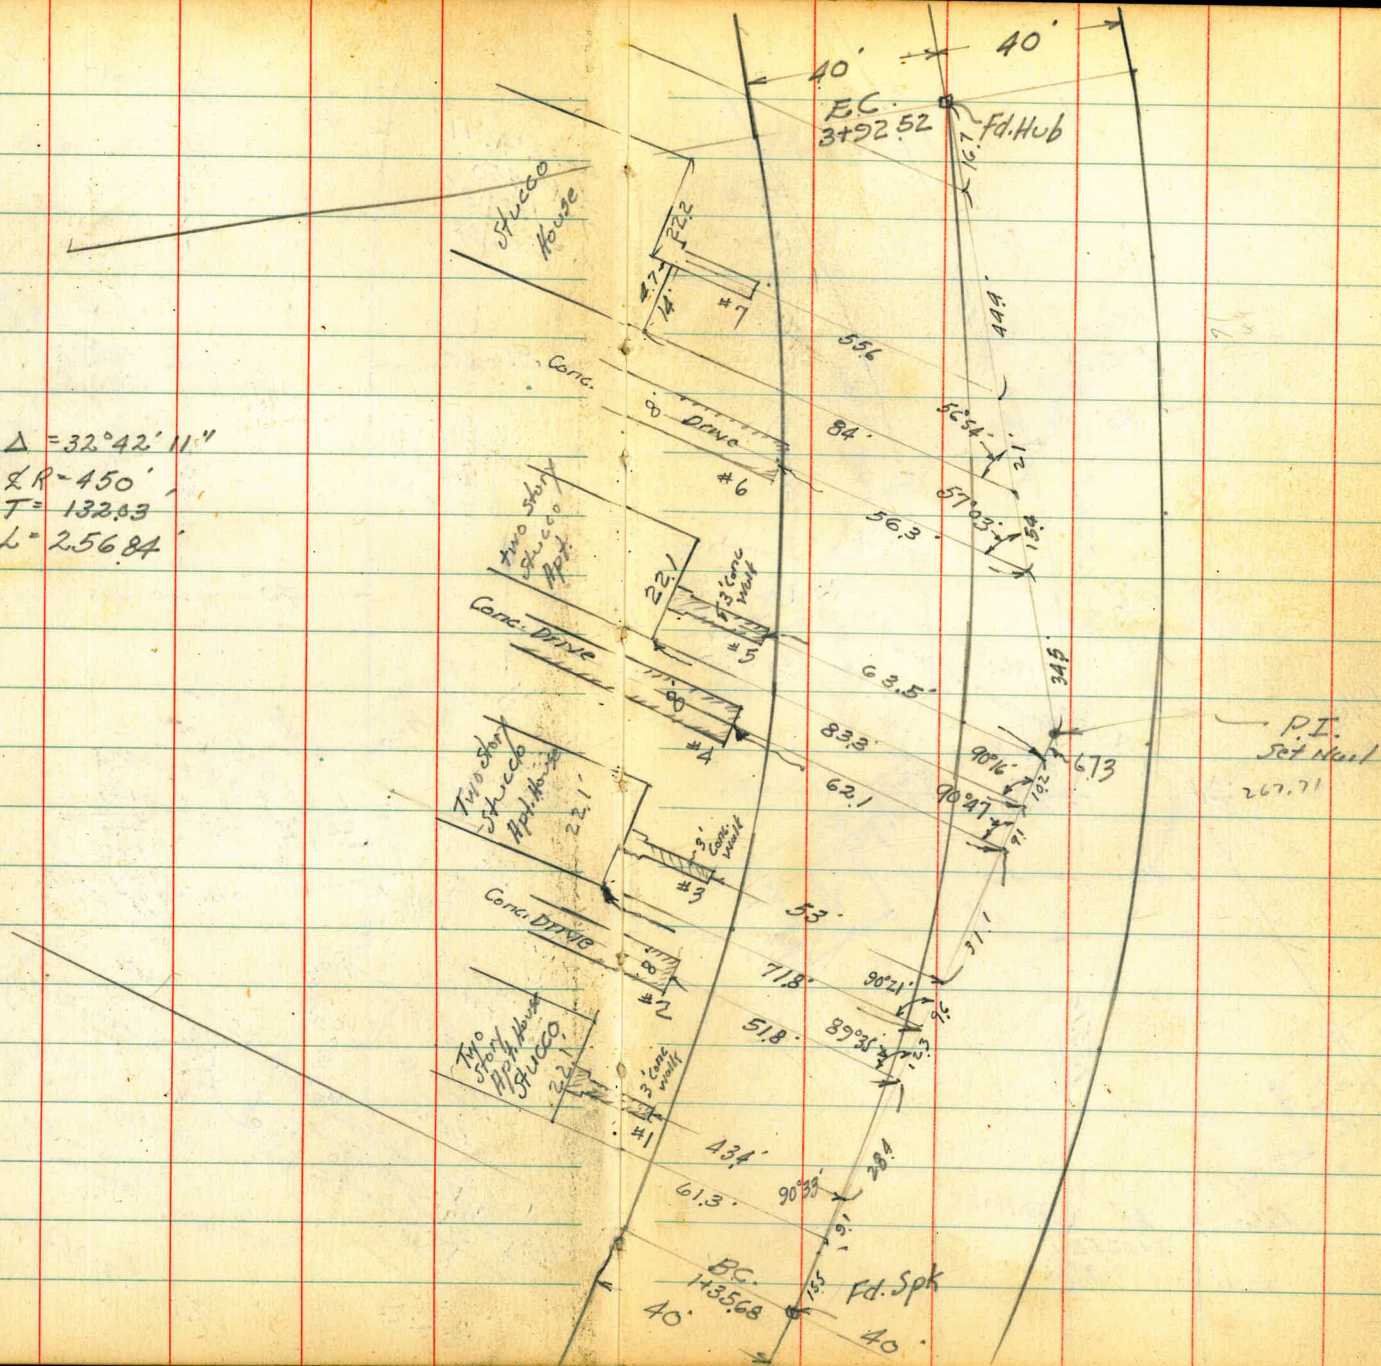 40'
40'
E.C.
3+92.52
Fd. Hub
16.7
Stucco
House
22.2
4.7
14'
#7
44.4'
55.6
Conc.
8'
Drive
#6
84'
56°54'
21.
57°03'
15.4
56.3
Δ = 32°42'11"
R = 450'
T = 132.03'
L = 256.84'
two story
Stucco
Apt.
22.1
3' Conc
Walk
#5
Conc. Drive
8
#4
34.5'
63.5'
83.3
62.1
P.I.
Set Nail
267.71
6.73
90°16'
10.2
90°47'
9.1
Two Story
Stucco
Apt. House
22.1'
3'
Conc.
Walk
#3
53'
31.1
Conc. Drive
8
#2
71.8'
90°21'
9.6
51.8'
89°35'
12.3
Two
Story
Apt. House
Stucco
22.1'
3' Conc
Walk
#1
43.4'
28.4
61.3'
90°33'
9.1
15.5
B.C.
1+35.68
Fd. Spk
40'
40'